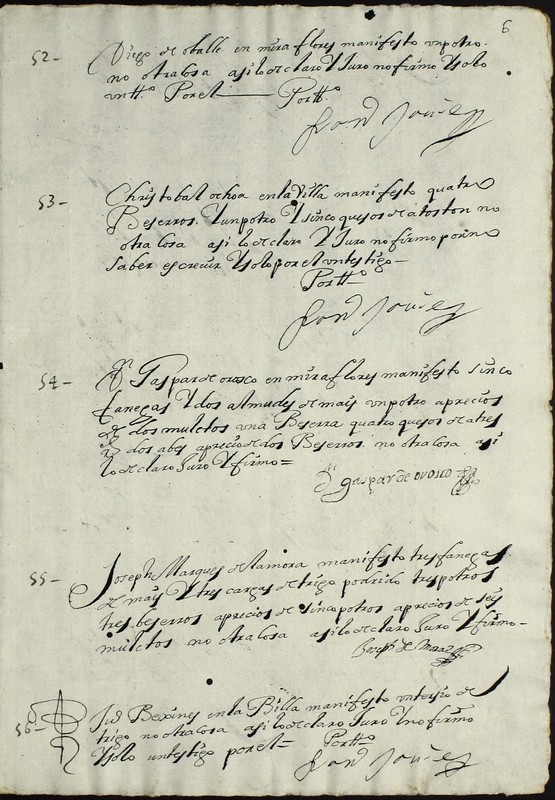 6
52- Diego de oballe en miraflores manifesto un potro.
no otra cosa asi lo declaro Y Juro no firmo Ysolo
un tt.º Por el Por tt.º
53- Christobal ochoa en la Villa manifesto quatro
Beserros. Y un potro Y sinco quesos de a toston no
otra cosa asi lo declaro Y Juro no firmo por no
saber escreuir Ysolo por el un testigo-
Por tt.º
54- Gaspar de orosco en miraflores manifesto sinco
fanegas Y dos almudes de mais un potro aprecios
de dos muletos una Beserra quatro quesos de a tres
dos abes aprecio de dos Beserros no otra cosa asi
lo declaro Juro Y firmo=
gaspar de orosco
55- Joseph Marques de lamora manifesto tres fanegas
de mais Y tres cargas de trigo podrido tres potros
tres beserros aprecios de sinco potros aprecios de seis
muletos no otra cosa asi lo declaro Juro Y firmo-
56- Bexines en la Billa manifesto un tersio de
trigo no otra cosa asi lo declaro Juro Y no firmo
Ysolo un testigo por el= Por tt.º